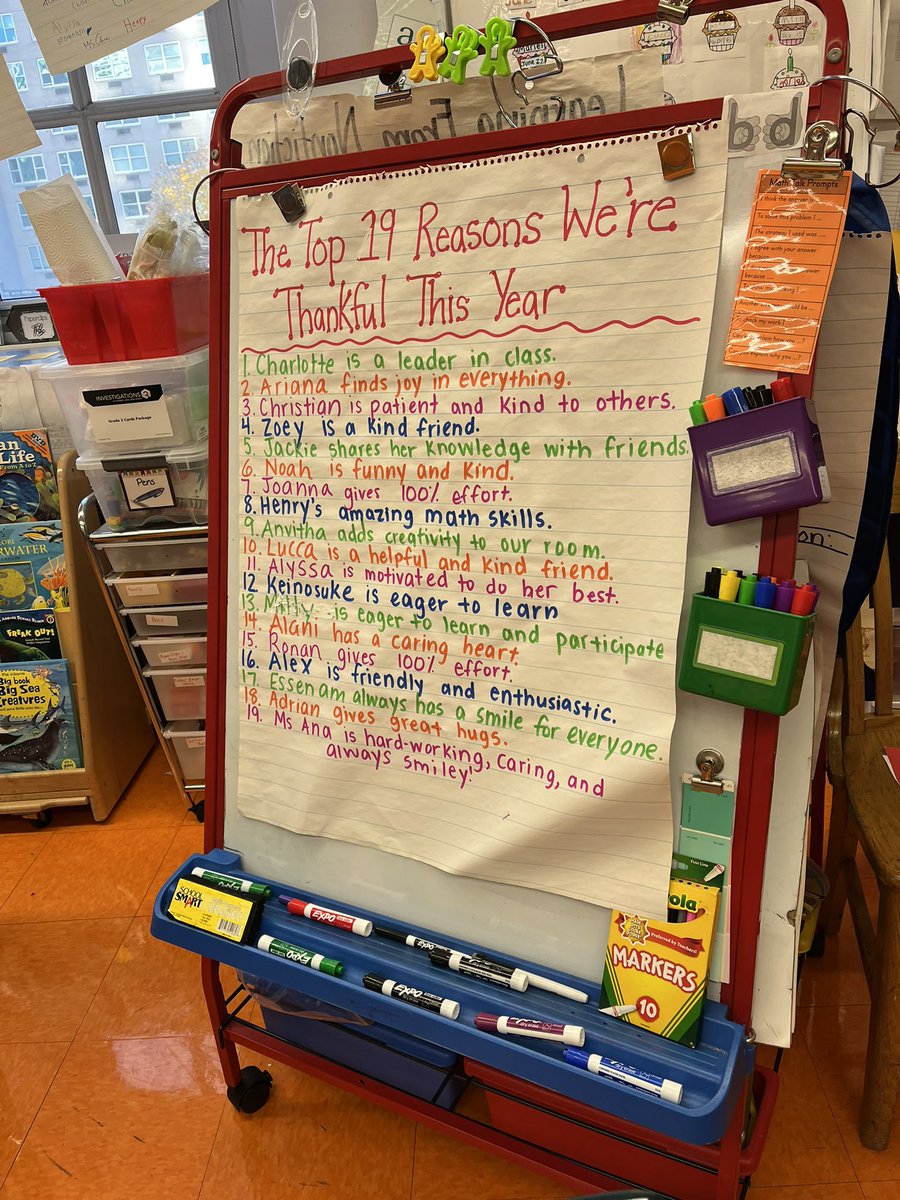 Alyssa
Henry
June 23
Learning From Nonfiction
bd
The Top 19 Reasons We're
Thankful This Year
1. Charlotte is a leader in class.
2. Ariana finds joy in everything.
3. Christian is patient and kind to others.
4. Zoey is a kind friend.
5. Jackie shares her knowledge with friends.
6. Noah is funny and kind.
7. Joanna gives 100% effort.
8. Henry's amazing math skills.
9. Anvitha adds creativity to our room.
10. Lucca is a helpful and kind friend.
11. Alyssa is motivated to do her best.
12. Keinosuke is eager to learn
13. is eager to learn and participate
14. Alani has a caring heart.
15. Ronan gives 100% effort.
16. Alex is friendly and enthusiastic.
17. Essenam always has a smile for everyone.
18. Adrian gives great hugs.
19. Ms Ana is hard-working, caring, and
always smiley!
Math Talk Prompts
I think the answer is
To solve this problem I ...
The strategy I used was ...
I agree with your answer
because
answer
because
check my work
explain how you ...?
explain why you ...?
on:
Paperclips
INVESTIGATIONS
Grade 2 Cards Package
Pens
an
Life
From A to Z
DVD
ERWATER
FREAK OUT!
Big book
Big Sea
Creatures
SCHOOL
SMART
EXPO
EXPO
EXPO
EXPO
EXPO
EXPO
EXPO
EXPO
Fine Line
ola
Preferred by Teachers!
MARKERS
10